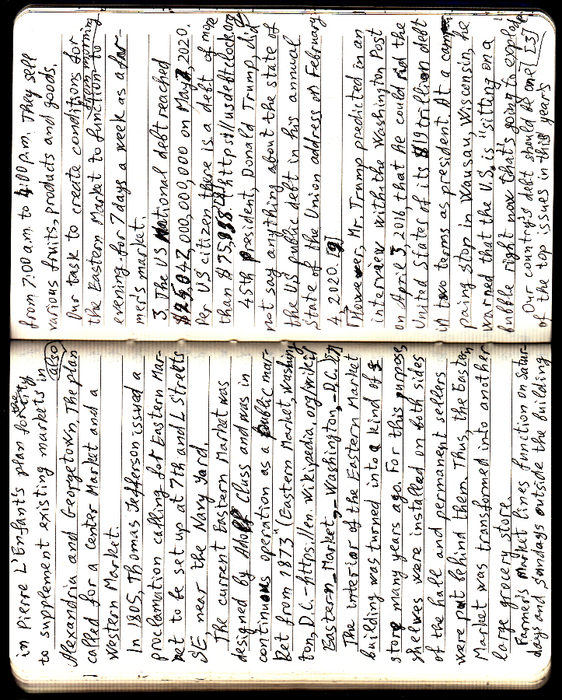 in Pierre L'Enfant's plan for the city
to supplement existing markets in
Alexandria and Georgetown. The plan also
called for a center Market and a
Western Market.
In 1805, Thomas Jefferson issued a
proclamation calling for Eastern Mar-
ket to be set up at 7th and L Streets
SE, near the Navy Yard.
The current Eastern Market was
designed by Adolf Cluss and was in
continuous operation as a public mar-
ket from 1873" (Eastern Market, Washing-
ton, D.C.-https://en.wikipedia.org/wiki/
Eastern_Market,_Washington,_D.C.)
The interior of the Eastern Market
building was turned into a kind of
store many years ago. For this purpose,
shelves were installed on both sides
of the hall and permanent sellers
were put behind them. Thus, the Eastern
Market was transformed into another
large grocery store.
Farmer's market lines function on Satur-
days and Sundays outside the building
from 7:00 a.m. to 4:00 p.m. They sell
various fruits, products and goods.
Our task to create conditions for
the Eastern Market to function from morning to
evening for 7 days a week as a far-
mer's market.
3. The US National debt reached
$25,042,000,000,000 on May 2020.
Per US citizen there is a debt of more
than $75, https://usdebtclock.org
45th President, Donald Trump, did
not say anything about the state of
the US public debt in his annual
State of the Union address on February
4, 2020.
However, Mr. Trump predicted in an
interview with the Washington Post
on April 3, 2016 that he could rid the
United State of its $19 trillion debt
in two terms as president. At a cam-
paing stop in Wausau, Wisconsin, he
warned that the U.S. is "sitting on a
bubble right now that's going to explode"
Our country's debt should be one
of the top issues in this year's